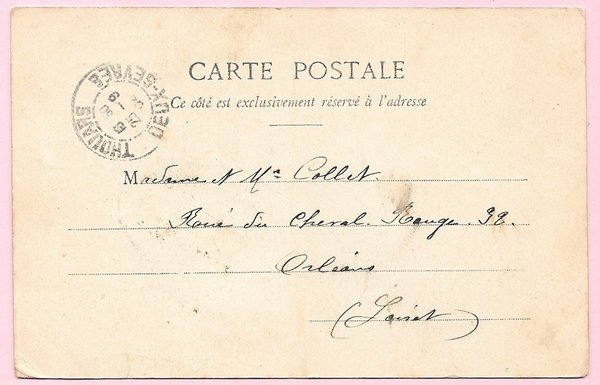 CARTE POSTALE
Ce côté est exclusivement réservé à l'adresse
THOUARS
DEUX-SEVRES
Madame N Mce Collet.
du Cheval Rouge. 32.
Orléans
(Loiret)